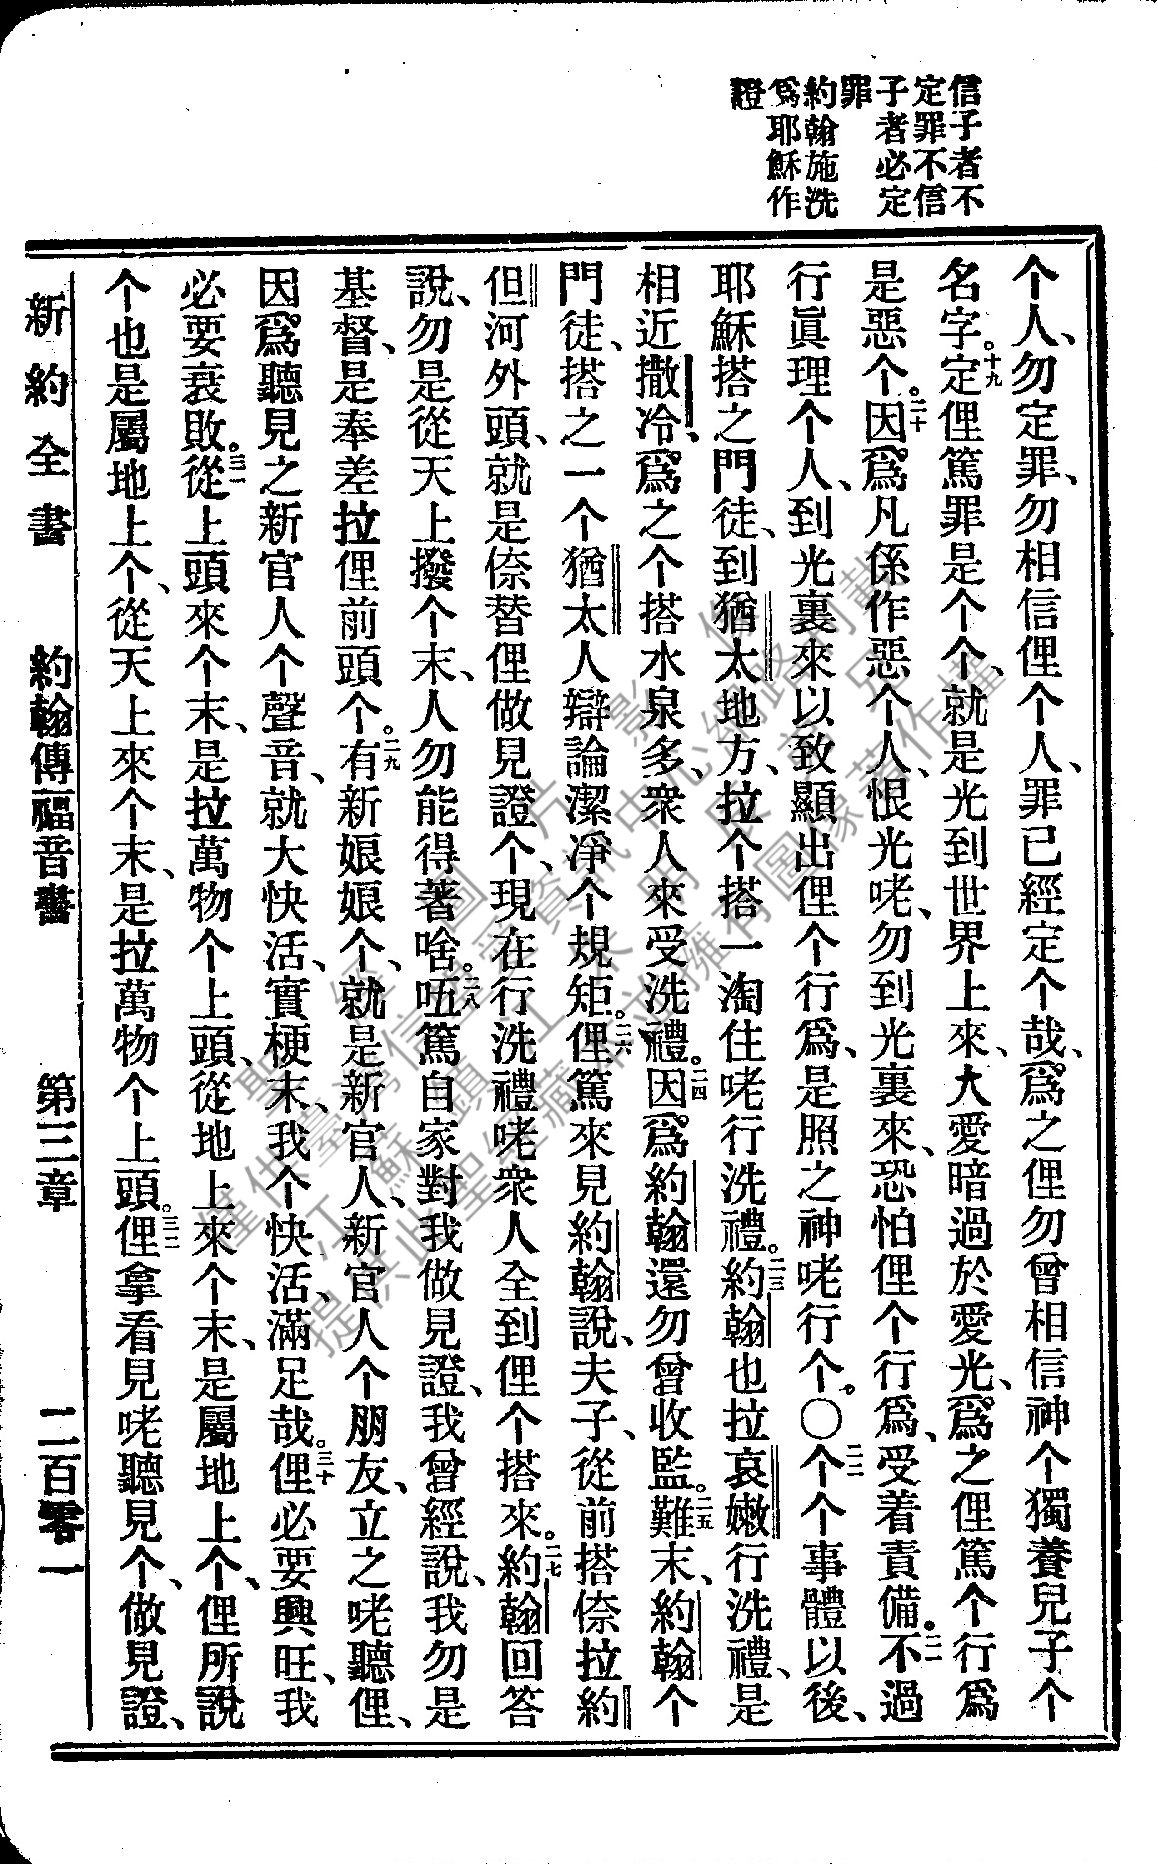 信子者不
定罪不信
子者必定
罪
約翰施洗
爲耶穌作
證
个人、勿定罪、勿相信俚个人、罪已經定个哉、爲之俚勿曾相信神个獨養兒子个
名字。十九定俚篤罪是个个、就是光到世界上來、大愛暗過於愛光、爲之俚篤个行爲
是惡个。二十因爲凡係作惡个人、恨光咾、勿到光裏來、恐怕俚个行爲、受着責備。二一不過
行眞理个人、到光裏來以致顯出俚个行爲、是照之神咾行个。〇二二个个事體以後、
耶穌搭之門徒、到猶太地方、拉个搭一淘住咾行洗禮。二三約翰也拉哀嫩行洗禮、是
相近撒冷、爲之个搭水泉多、衆人來受洗禮。二四因爲約翰還勿曾收監。二五難末、約翰个
門徒、搭之一个猶太人辯論潔淨个規矩。二六俚篤來見約翰說、夫子、從前搭倷拉約
但河外頭、就是倷替俚做見證个、現在行洗禮咾衆人全到俚个搭來。二七約翰回答
說、勿是從天上撥个末、人勿能得著啥。二八𠰻篤自家對我做見證、我曾經說、我勿是
基督、是奉差拉俚前頭个。二九有新娘娘个、就是新官人、新官人个朋友、立之咾聽俚、
因爲聽見之新官人个聲音、就大快活、實梗末、我个快活、滿足哉。三十俚必要興旺、我
必要衰敗。三一從上頭來个末、是拉萬物个上頭、從地上來个末、是屬地上个、俚所說
个也是屬地上个、從天上來个末、是拉萬物个上頭。三二俚拿看見咾聽見个、做見證、
新約全書　約翰傳福音書　第三章　二百零一
僅供臺灣信望愛資訊中心網路刊載